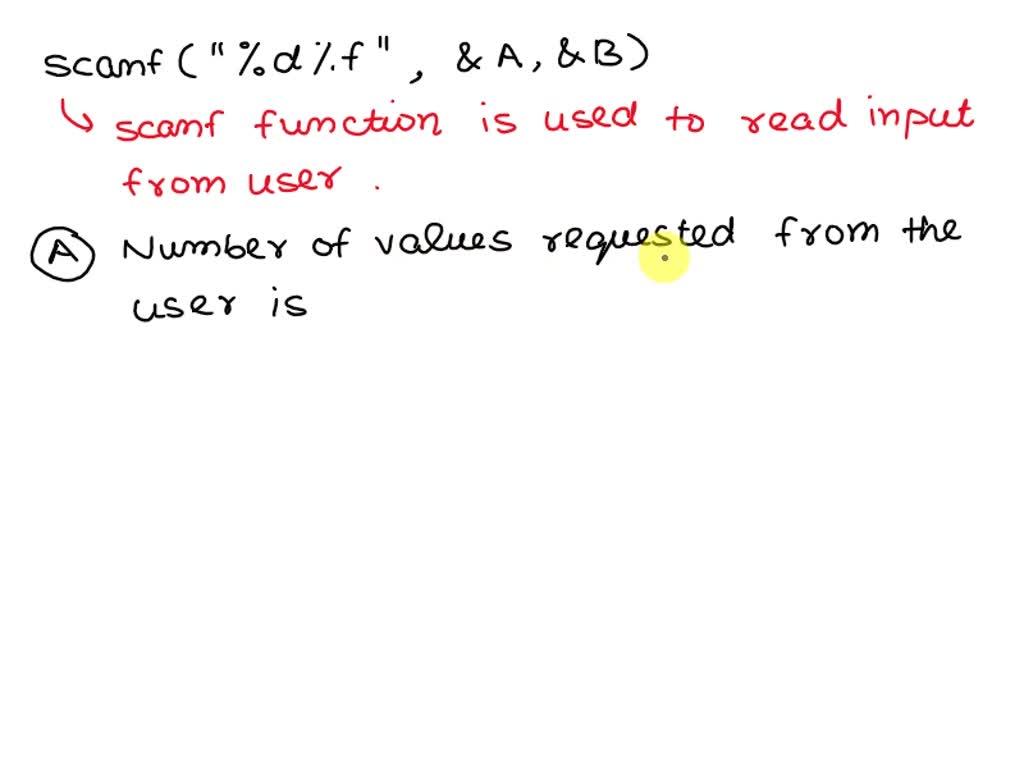 scanf ( " %d %f " , & A, & B )
↳ scanf function is used to read input
from user .
A Number of values requested from the
user is